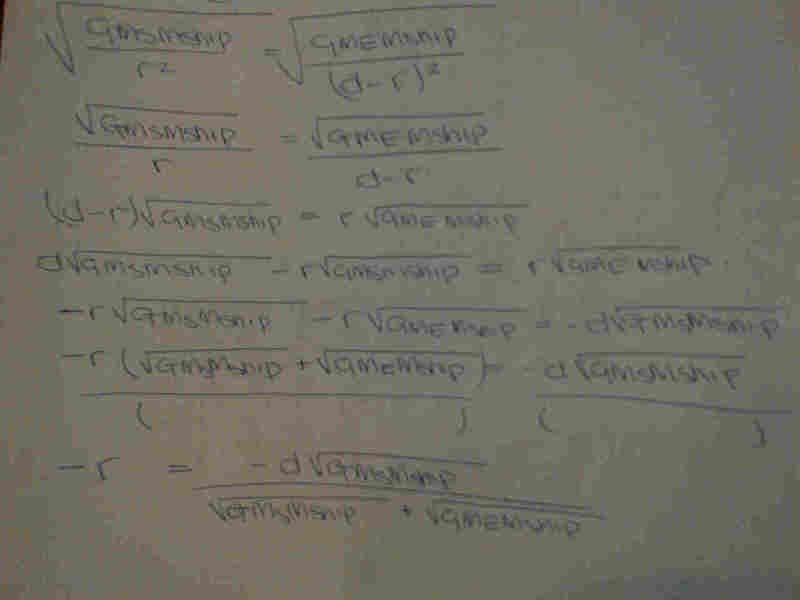 √(GMsMship / r²) = √(GMEMship / (d-r)²)
√GMsMship / r = √GMEMship / d-r
(d-r)√GMsMship = r√GMEMship
d√GMsMship - r√GMsMship = r√GMEMship.
-r√GMsMship - r√GMEMship = -d√GMsMship
-r(√GMsMship + √GMEMship) = -d√GMsMship
( ) ( )
-r = -d√GMsMship / √GMsMship + √GMEMship